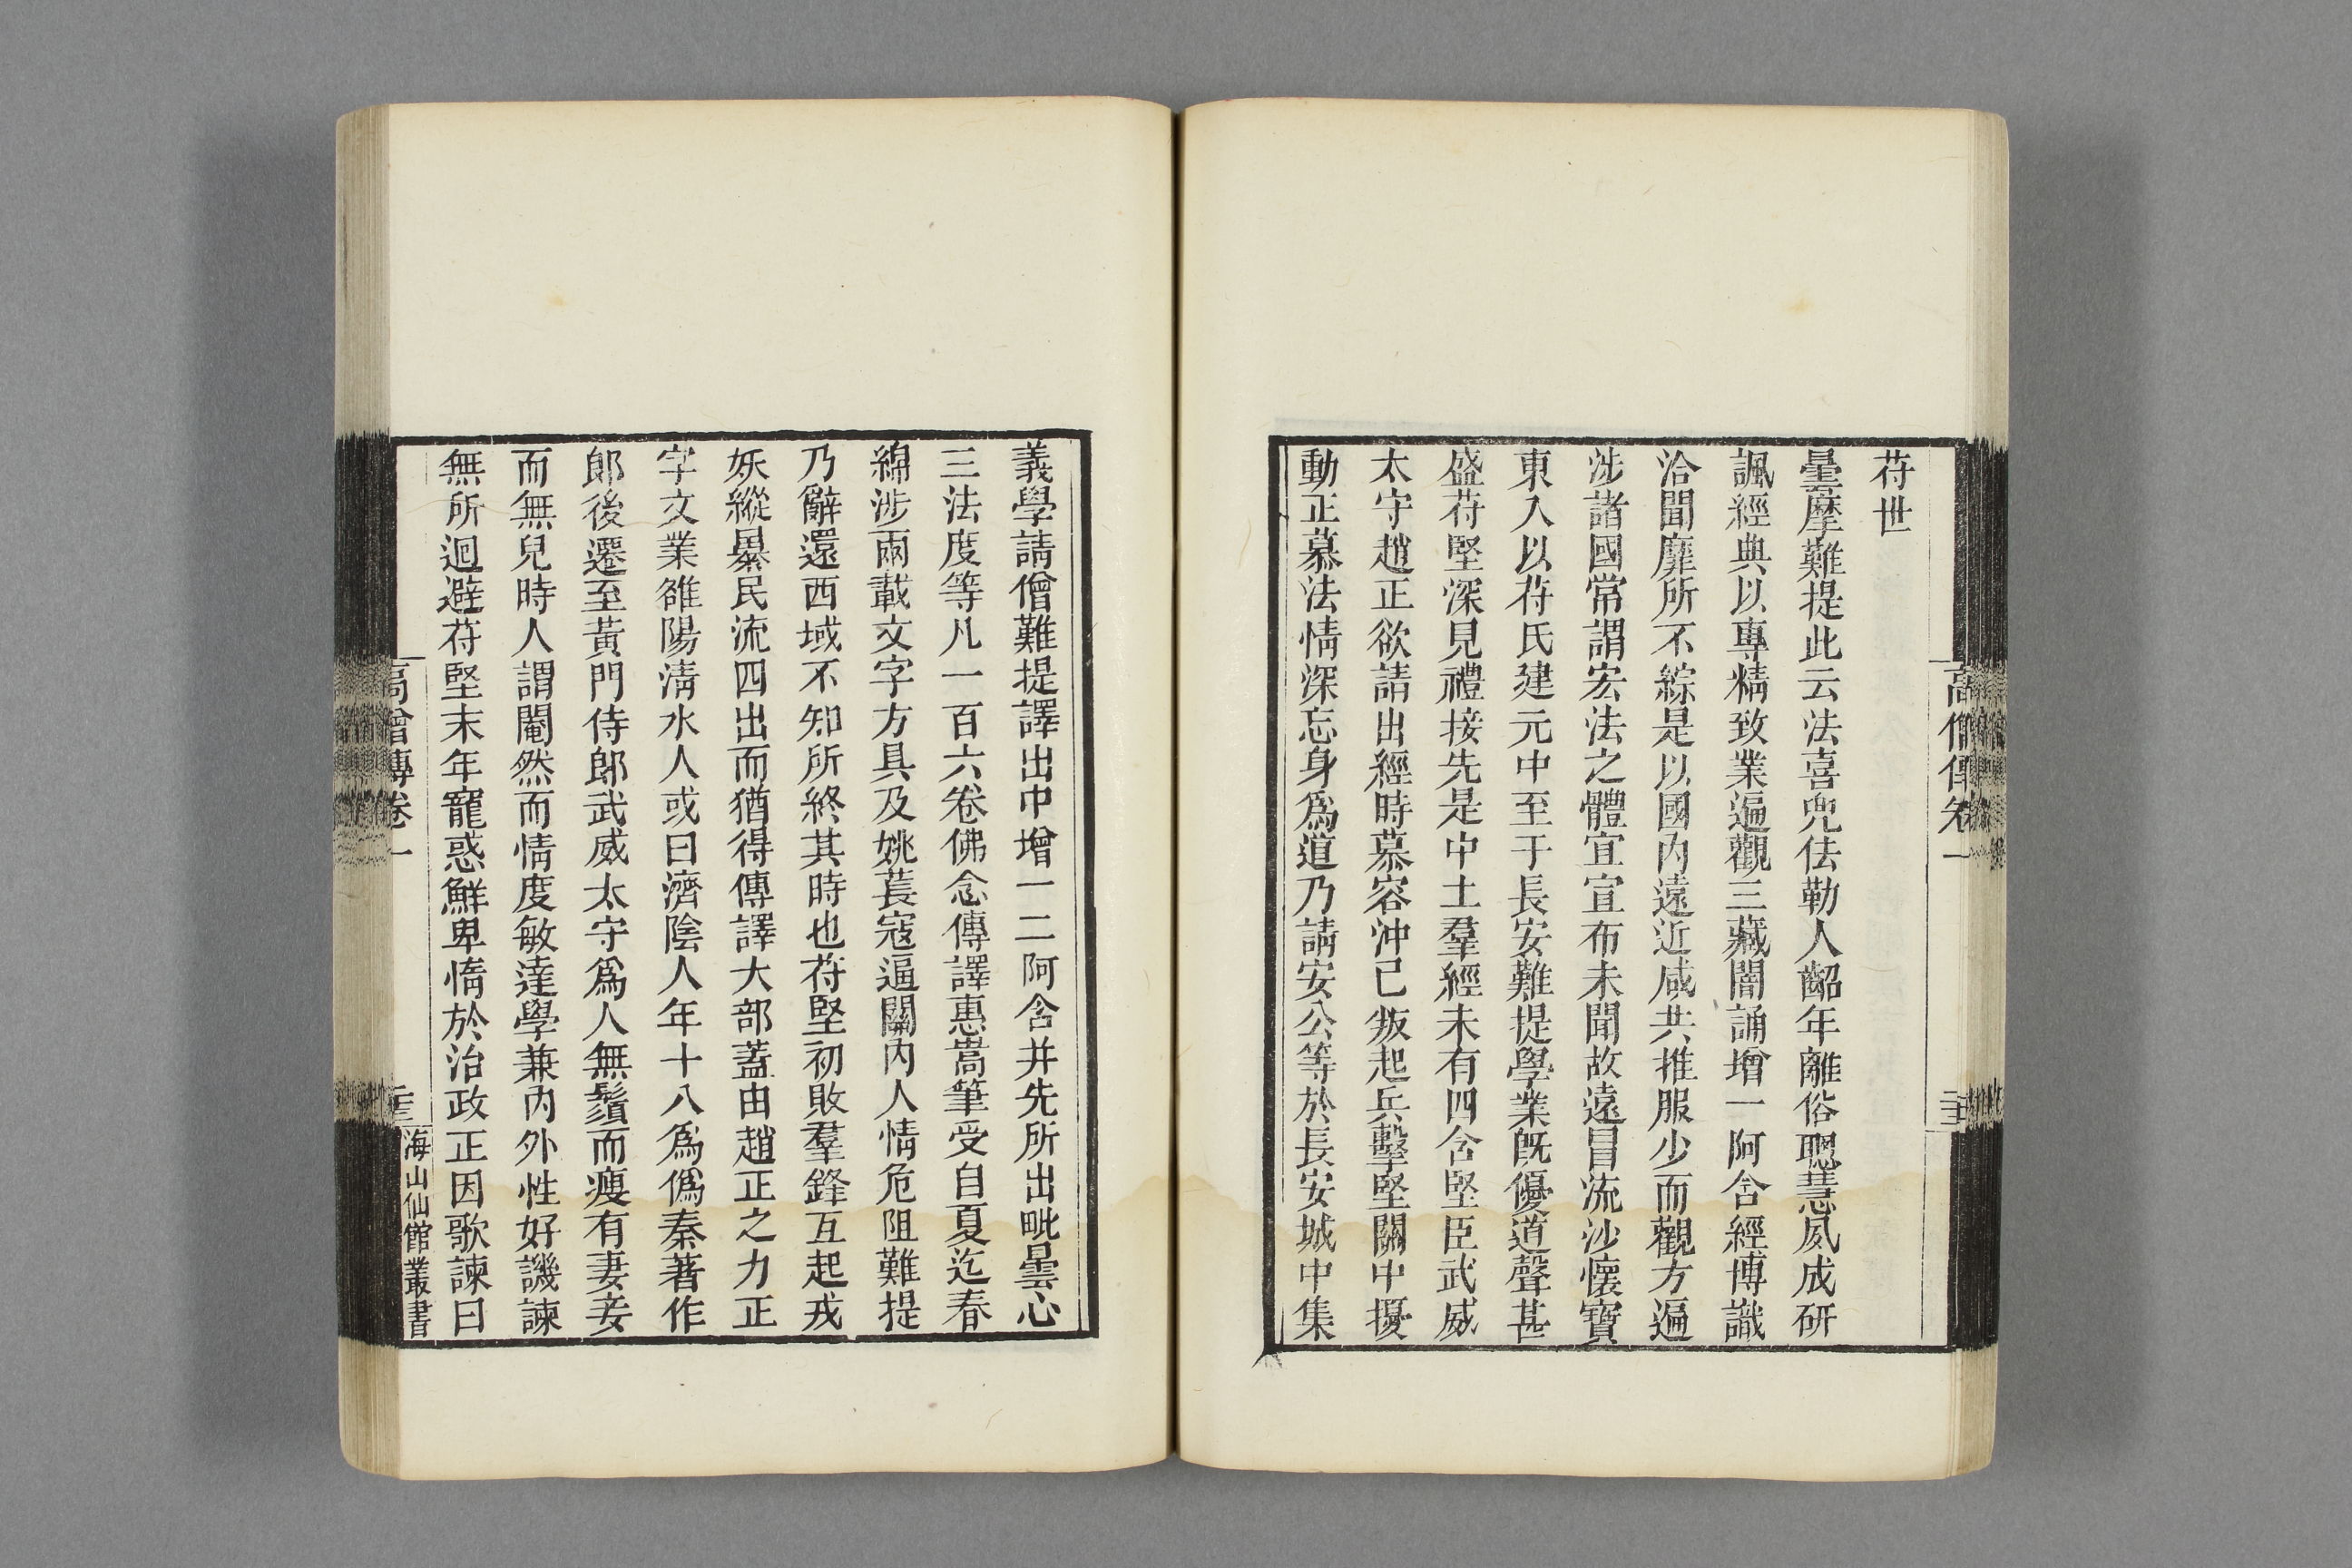 苻世
曇摩難提此云法喜兜佉勒人齠年離俗聰慧夙成研
諷經典以專精致業遍觀三藏闇誦增一阿含經博識
洽聞靡所不綜是以國內遠近咸共推服少而觀方遍
涉諸國常謂宏法之體宜宣布未聞故遠冒流沙懷寶
東入以苻氏建元中至于長安難提學業旣優道聲甚
盛苻堅深見禮接先是中土羣經未有四含堅臣武威
太守趙正欲請出經時慕容沖已叛起兵擊堅關中擾
動正慕法情深忘身爲道乃請安公等於長安城中集
義學請僧難提譯出中增一二阿含并先所出毗曇心
三法度等凡一百六卷佛念傳譯惠嵩筆受自夏迄春
綿涉兩載文字方具及姚萇寇逼關內人情危阻難提
乃辭還西域不知所終其時也苻堅初敗羣鋒互起戎
妖縱暴民流四出而猶得傳譯大部蓋由趙正之力正
字文業雒陽淸水人或曰濟陰人年十八爲僞秦著作
郞後遷至黃門侍郞武威太守爲人無鬚而瘦有妻妾
而無兒時人謂閹然而情度敏達學兼內外性好譏諫
無所迴避苻堅末年寵惑鮮卑惰於治政正因歌諫曰
高僧傳卷一
海山仙館叢書